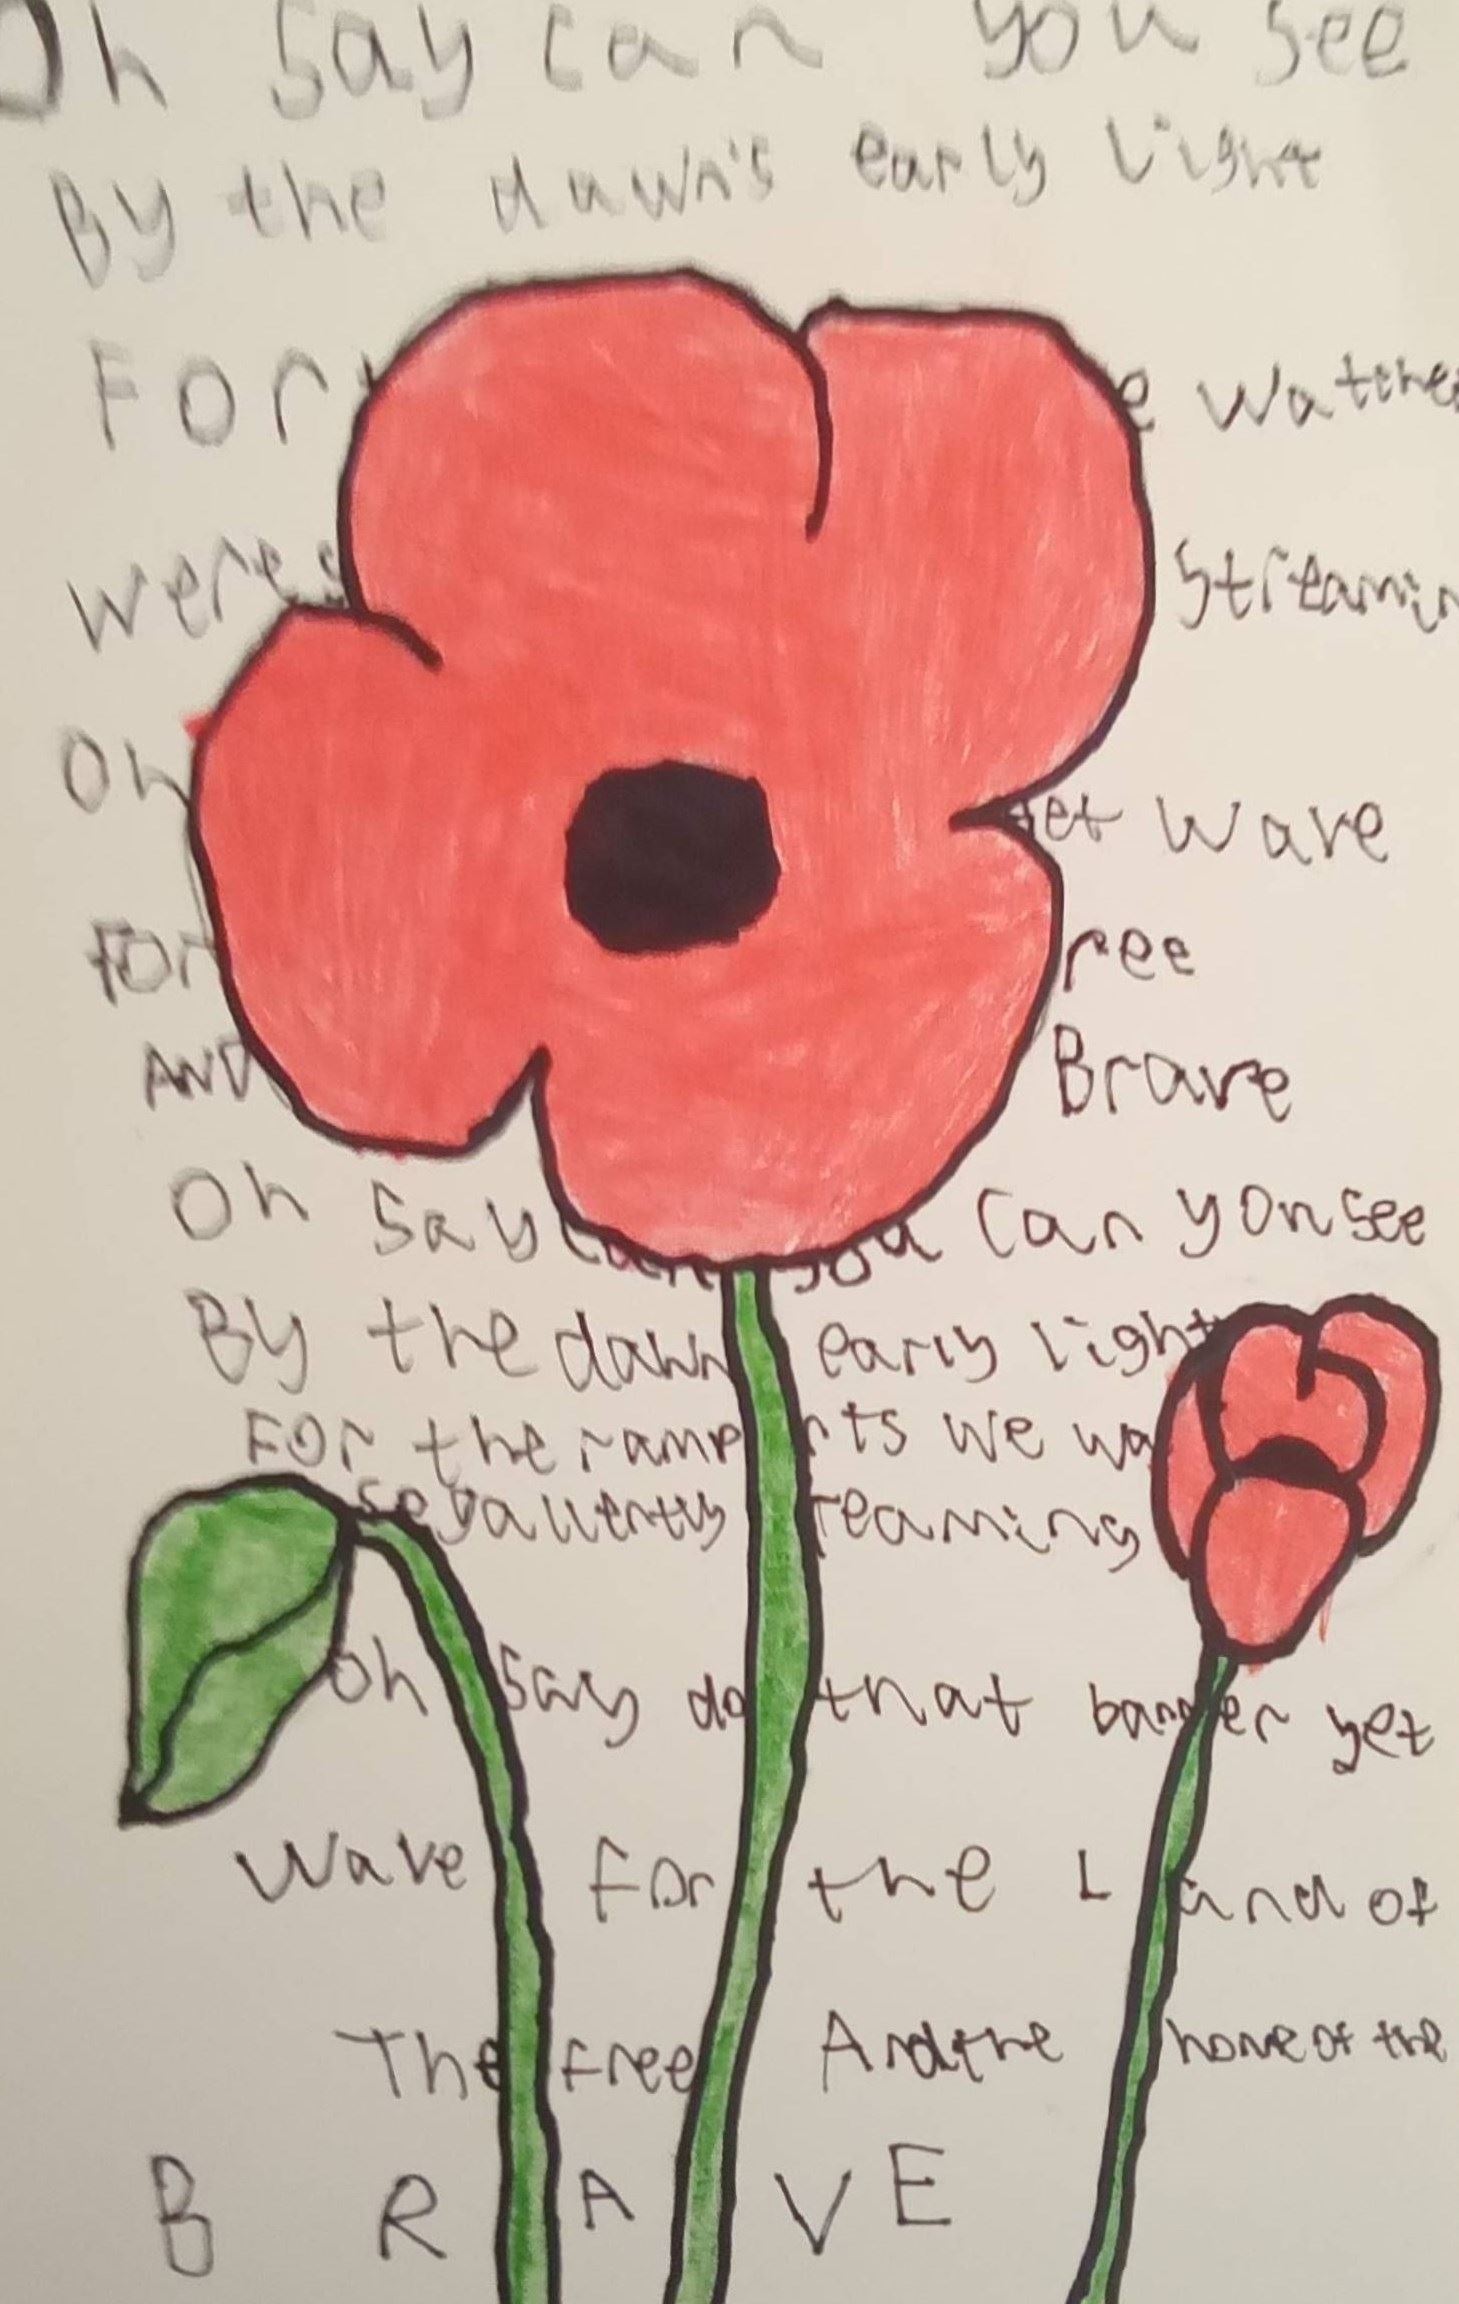 Oh say can you see
By the dawn's early light
For e watche
were s streamin
Oh yet wave
for ree
AND Brave
Oh say can you can you see
By the dawn early light
For the ramp rts we wa
se gallently reaming
Oh say do that banner yet
wave for the Land of
The free And the home of the
BRAVE